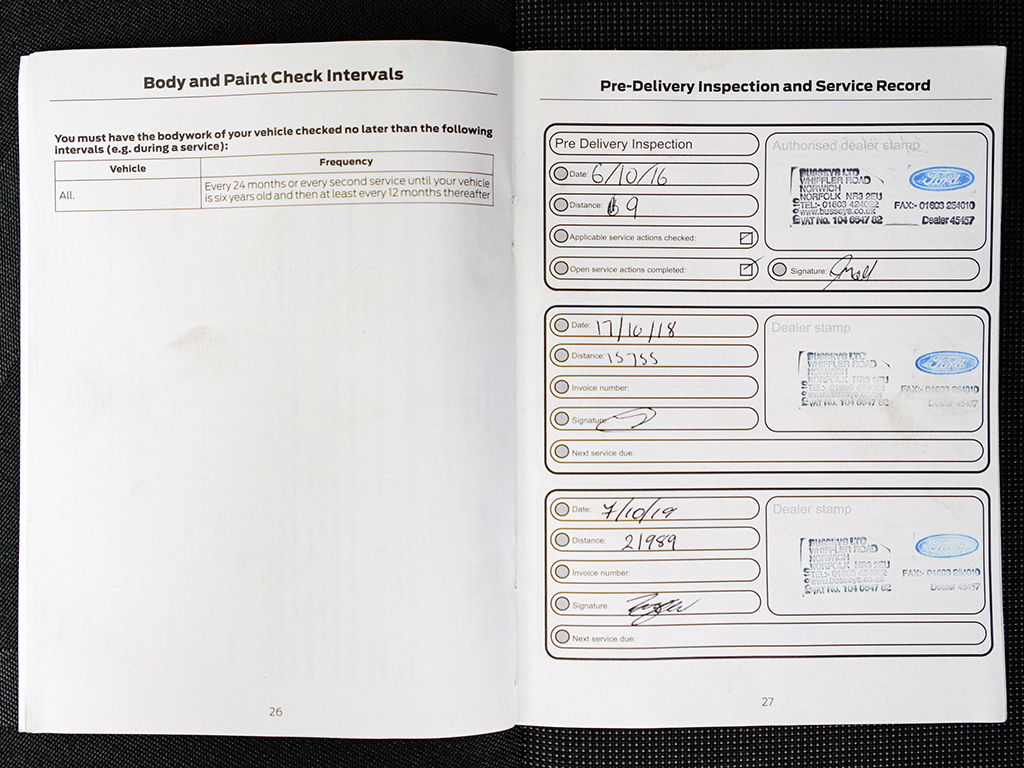 Body and Paint Check Intervals
You must have the bodywork of your vehicle checked no later than the following
intervals (e.g. during a service):
Vehicle Frequency
All. Every 24 months or every second service until your vehicle
is six years old and then at least every 12 months thereafter
26
Pre-Delivery Inspection and Service Record
Pre Delivery Inspection
Date: 6/10/16
Distance: 69
Applicable service actions checked:
Open service actions completed:
Authorised dealer stamp
BUSSEYS LTD
WHIFFLER ROAD
NORWICH
NORFOLK NR3 2EU
TEL:- 01603 424022 FAX:- 01603 254010
www.busseys.co.uk
VAT No. 104 6647 82 Dealer 45457
Ford
Signature:
Date: 17/10/18
Distance: 15755
Invoice number:
Signature:
Next service due:
Dealer stamp
BUSSEYS LTD
WHIFFLER ROAD
NORWICH
NORFOLK NR3 2EU
FAX:- 01603 254010
www.busseys.co.uk
VAT No. 104 6647 82 Dealer 45457
Ford
Date: 7/10/19
Distance: 21989
Invoice number:
Signature:
Next service due:
Dealer stamp
BUSSEYS LTD
WHIFFLER ROAD
NORWICH
NORFOLK NR3 2EU
FAX:- 01603 254010
www.busseys.co.uk
VAT No. 104 6647 82 Dealer 45457
Ford
27